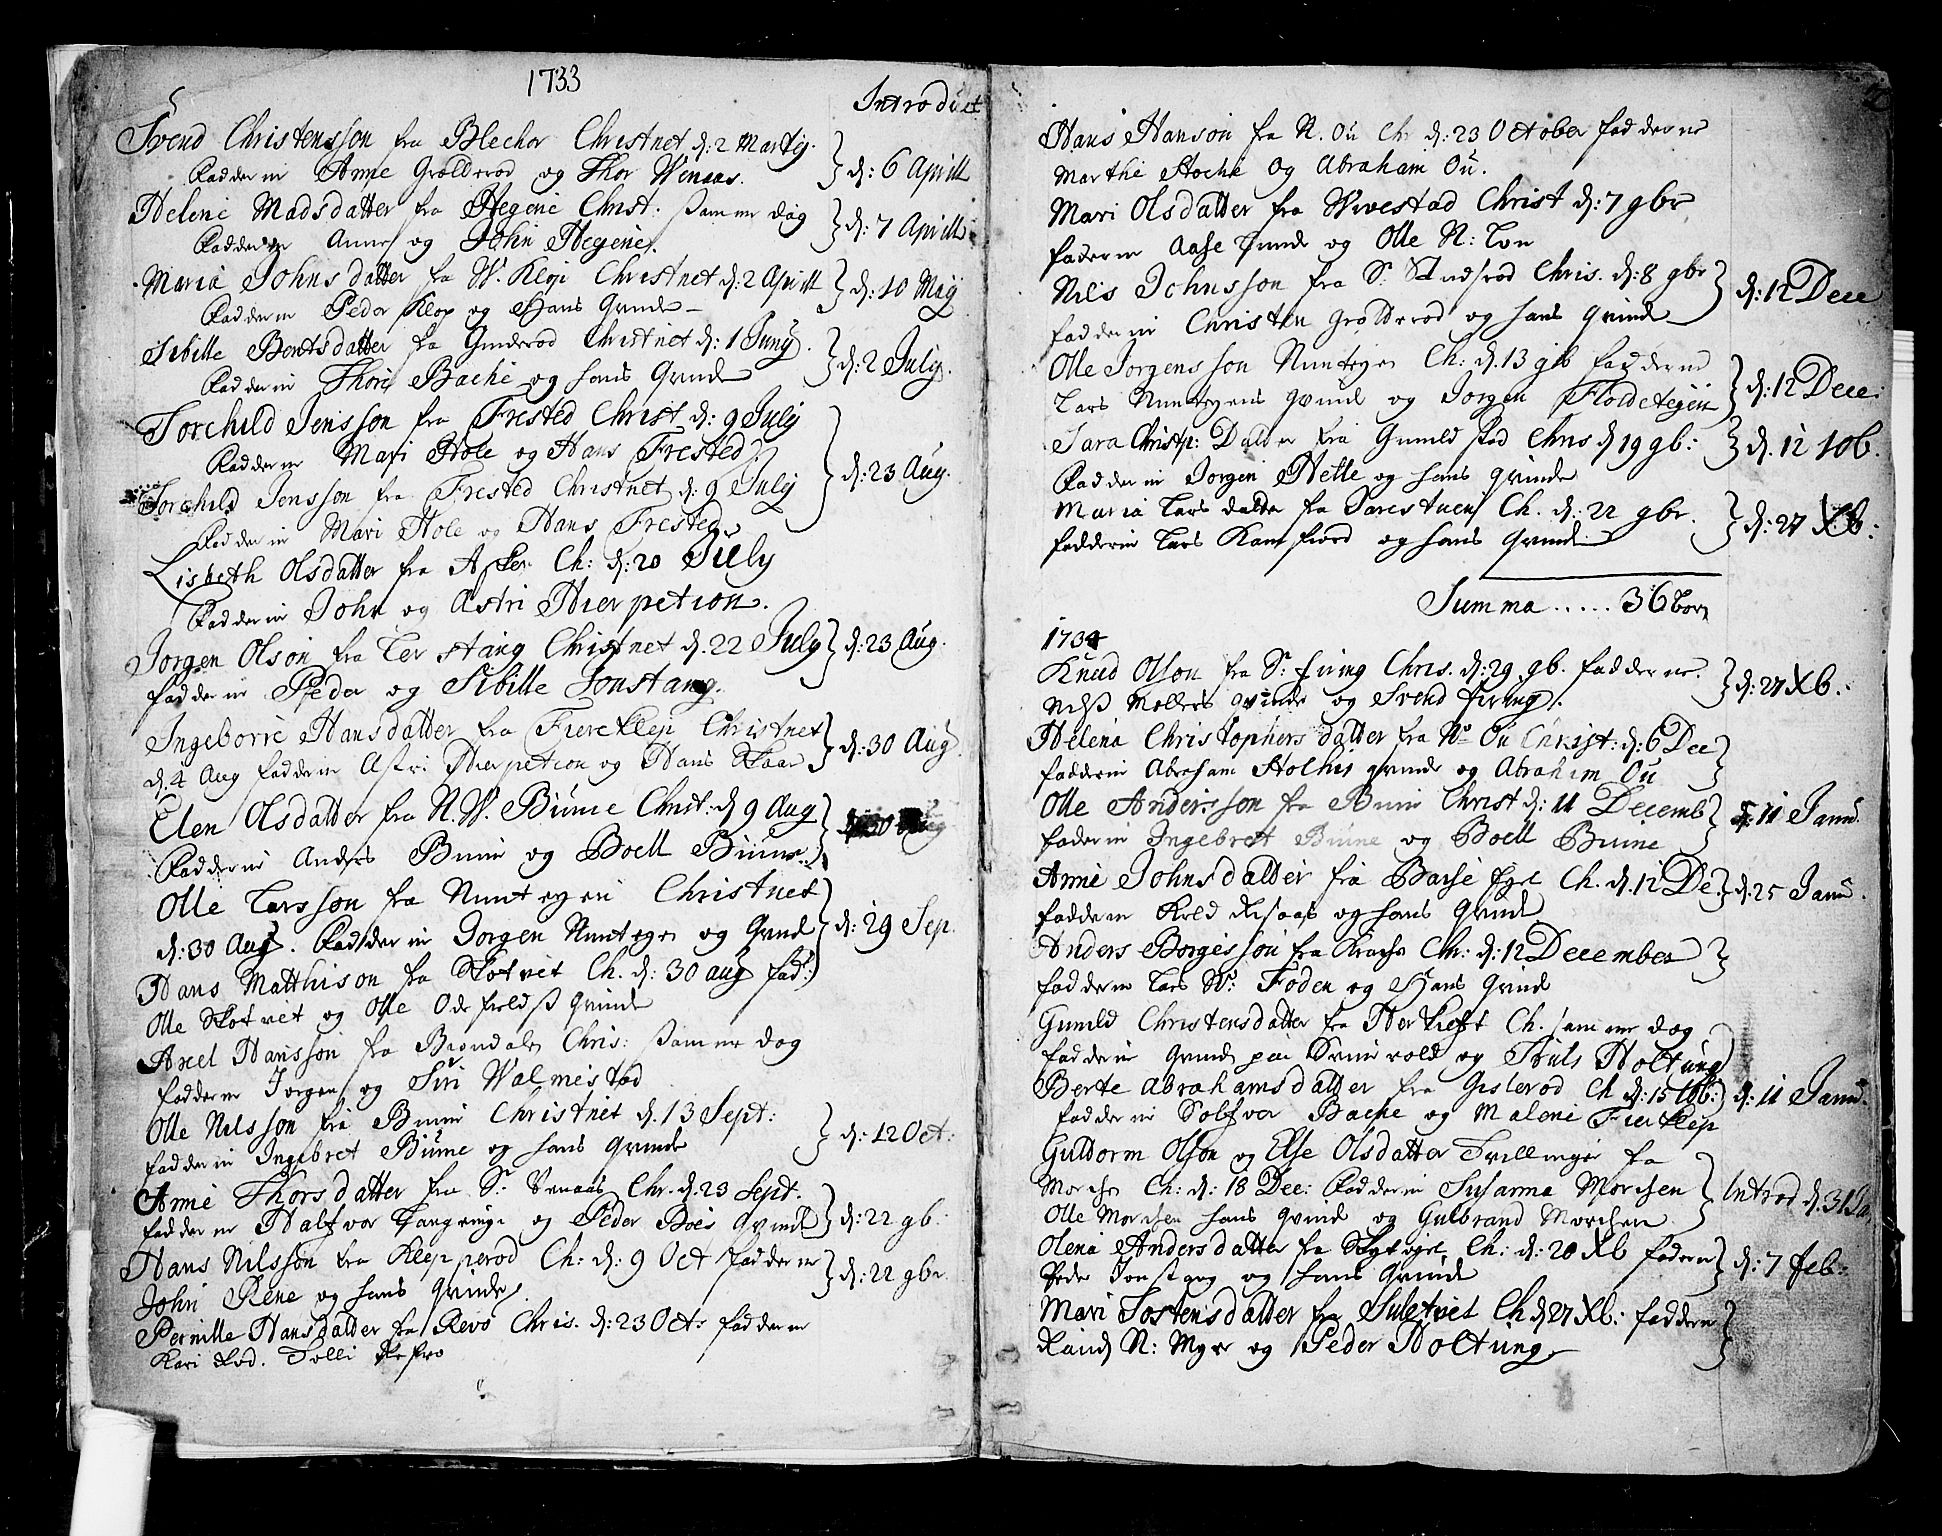 1733
Introduct
Svend Christensson fra Blecher Christnet d: 2 Martij.
Faddere Anne Grolderod og Thor Wenaas. } d: 6 Aprill
Helene Madsdatter fra Hegene Christ: samme dag
Faddere Anne og John Hegene. } d: 7 Aprill
Maria Johnsdatter fra W. Klop Christnet d: 2 Aprill
Faddere Peder Klop og Hans Qvinde } d: 10 Maij
Sibille Bentsdatter fra Gunderod Christnet d: 1 Junij.
Faddere Thore Bache og hans Qvinde } d: 2 July.
Torchild Jensson fra Frested Christ d: 9 July
Faddere Mari Hole og Hans Frested
Torchild Jensson fra Frested Christnet d: 9 July } d: 23 Aug.
Faddere Mari Hole og Hans Frested
Lisbeth Olsdatter fra Asker Ch: d: 20 July
Faddere John og Astri Hierpetion.
Jorgen Olson fra Ler stang Christnet d. 22 July } d: 23 Aug.
faddere Peder og Sibille Jonstang.
Ingeborre Hansdatter fra Fiereklep Christnet
d. 4 Aug faddere Astri Hierpetion og Hans Skaar } d: 30 Aug
Elen Olsdatter fra N. W. Bune Christ: d 9 Aug
Faddere Anders Bune og Boell Biune } d: 30 Aug
Olle Larsson fra Nuntegen Christnet
d: 30 Aug. Faddere Jorgen Nuntegen og Qvind } d: 29 Sep.
Hans Matthison fra Skotvet Ch. d: 30 aug fad:
Olle Skotvet og Olle Odefields Qvinde
Axel Hansson fra Brondalen Chris: samme dag
faddere Jorgen og Siri Walmestad
Olle Nilsson fra Bune Christnet d. 13 Sept:
faddere Ingebret Biune og hans Qvinde } d: 12 Oct:
Anne Thorsdatter fra S: Venaas Chr. d. 23 Sept.
faddere Halfvor Tangenge og Peder Boes Qvinde } d: 22 gb:
Hans Nilsson fra Klepperod Ch: d: 9 Oct faddere
John Rene og hans Qvinde. } d: 22 gbr
Pernille Hansdatter fra Revo Chris. d: 23 Oct: faddere
Kari Rod. Tolli
2
Hans Hanson fra N. Ou Ch d: 23 October faddere
Marthe Stoche og Abraham Ou.
Mari Olsdatter fra Wivestad Christ d: 7 gbr
fadere Aase Tunde og Olle N: Lon
Nils Johnsson fra S: Sundsrod Chris. d: 8 gbr } d: 12 Dece
faddere Christen Grolderod og hans Qvinde
Olle Jorgensson Nuntegen Ch: d. 13 gb faddere
Lars Nuntegens Qvinde og Jorgen Floldetegen } d: 12 Dece:
Sara Christp: Datter fra Gunildstad Chris d 19 gb: } d. 12 10b.
Faddere Jorgen Helle og hans Qvinde
Maria Larsdatter fra Sarestuen Ch. d: 22 gbr.
faddere Lars Kamfiord og hans Qvinde } d: 27 Xb:
Summa ..... 36 born
1734
Knud Olson fra S: Euing Chris. d: 29 gb. faddere
Nels Mollers Qvinde og Svend Euing. } d: 27 Xb.
Helena Christophersdatter fra No Ou Christ: d: 6 Dec
faddere Abraham Stolhis qvinde og Abrahim Ou
Olle Andersson fra Bune Christ d: 11 Decemb } d: 11 Janu.
fadere Ingebret Biune og Boell Bruine
Anne Johnsdatter fra Barse Egel Ch. d. 12 De. } d: 25 Janu.
faddere Keld Risaas og hans Qvinde
Anders Borgesson fra Krachs Ch: d: 12 December
faddere Lars W: Foden og Hans Qvind
Gunild Christensdatter fra Herkiest Ch. samme dag
faddere Qvinde paa Semevold og Truls Holtung
Berte Abrahamsdatter fra Gislerod Ch d: 15 10b: } d: 11 Janu.
faddere Solfvor Bache og Malene Fierklep
Guldorm Olson og Else Olsdatter Tvillinger fra
Morchen Ch: d: 18 Dec: Faddere Susanna Morchen } Introd d. 31 Ja
Olle Morchen hans Qvinde og Gulbrand Morchen
Olena Andersdatter fra Skytegel Ch: d: 20 Xb fadere } d: 7 feb:
Peder Jonstang og hans Qvinde
Mari Tostensdatter fra Suletvet Ch d 27 Xb: faddere
Rand N: Myre og Peder Holtung